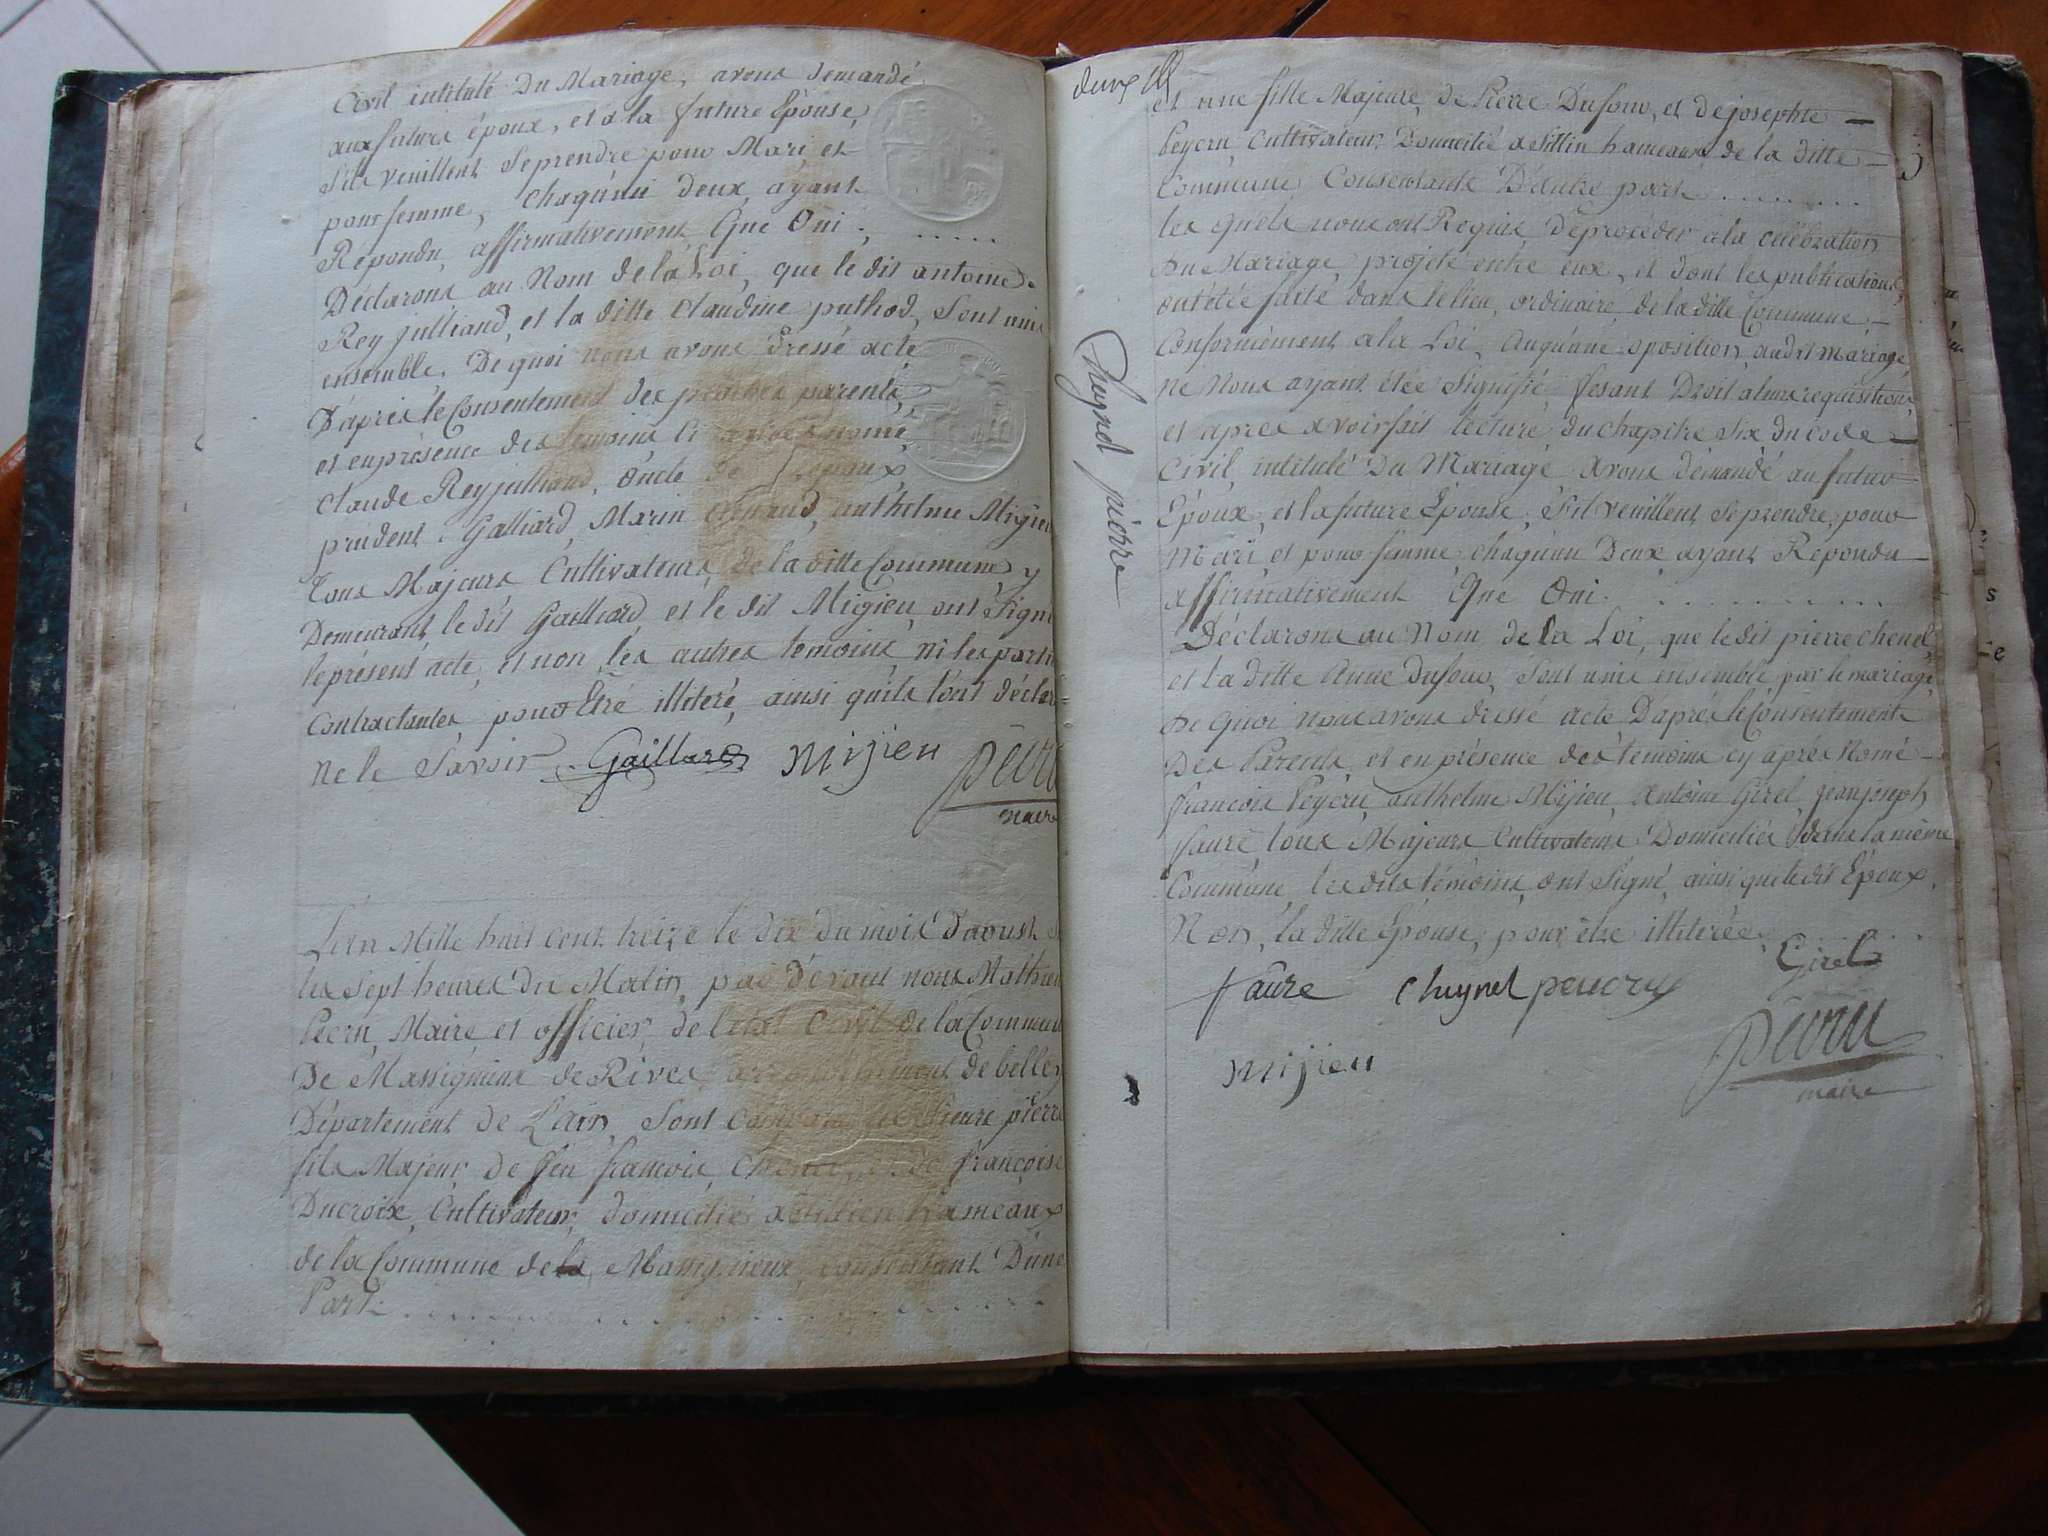 Civil intitulé Du Mariage, avons demandé
aux futurs époux, et a la future Épouse,
S'ils veuillent Se prendre pour Mari et
pour femme, Chaqu'un deux ayant
Repondu, affirmativement Que Oui . . . . . .
Déclarons au Nom de la Loi, que le dit antoine
Rey julliand, et la ditte Claudine puthod, Sont unis
ensemble. De quoi nous avons dressé acte
D'aprés le Consentement des proches parents,
et en présence des temoins nomé
Claude Rey julliand, Oncle époux
prudent Galliard, Marin anthelme Migieu
Tous Majeurs Cultivateurs de la ditte Commune, y
Demeurant, le dit Galliard et le dit Migieu, ont Signé
le présent acte, et non les autres temoins, ni les partie
Contractantes, pour Etré illiteré, ainsi quils l'ont déclar
Ne le Savoir Gaillard Mijieu Pécru
maire
L'an Mille huit cent treize le dix du mois D'aoust
les Sept heures Du Matin, par D'evant nous Mathieu
Pecru, Maire et officier, de l'état Civil de la Commune
De Massignieux de Rives arrondissement de belley
Département de L'ain, Sont pierre
fils Majeur de feu francois, et de françoise
Ducroix, Cultivateur, domicilié hameaux
de la Commune de la Massignieux, consentant D'une
Part . . . . . . . . . . . . . . .
et une fille Majeure, de Pierre Dufour, et de josephte
Peycru, Cultivateur Domicilié a Sillin hameaux de la ditte
Commune, Consentante D'autre part . . . . . . . .
les quels nous ont Requis De procéder a la celebration
Du Mariage, projeté entre eux, et dont les publications,
ont étée faite dans le lieu, ordinaire, de la ditte Commune,
Conformément a la Loi, Auqu'une oposition, audit mariage,
ne Nous ayant étée Signifié, fesant Droit a leurs requisitions,
et aprés avoir fait lecture, du chapitre Six du code
Civil, intitulé Du Mariage, avons démandé au futur
Époux, et la future Épouse, S'il veuillent Se prendre, pour
Mari, et pour femme, chaqu'un Deux ayant Repondu
affirmativement Que Oui. . . . . . . . . . .
Déclarons au Nom de la Loi, que le dit pierre chenel,
et la ditte Anne dufour, Sont unis ensemble par le mariage,
De Quoi nous avons dressé acte D'aprés le Consentement
Des Parents, et en présence des témoins cy aprés Nomé
françois Peycru, anthelme Mijieu, Antoine Girel, jean joseph
faure, tous Majeurs Cultivateurs Domiciliés dans la même
Commune, les dits témoins, ont Signé, ainsi que le dit Époux,
Non, la ditte Épouse, pour étre illiterée . . . . . .
Cheynel pierre
Girel
faure Cheynel peucru
Mijieu
Pécru
maire